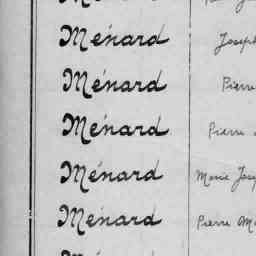 Ménard Joseph
Ménard Pierre
Ménard Pierre
Ménard Marie Josep
Ménard Pierre